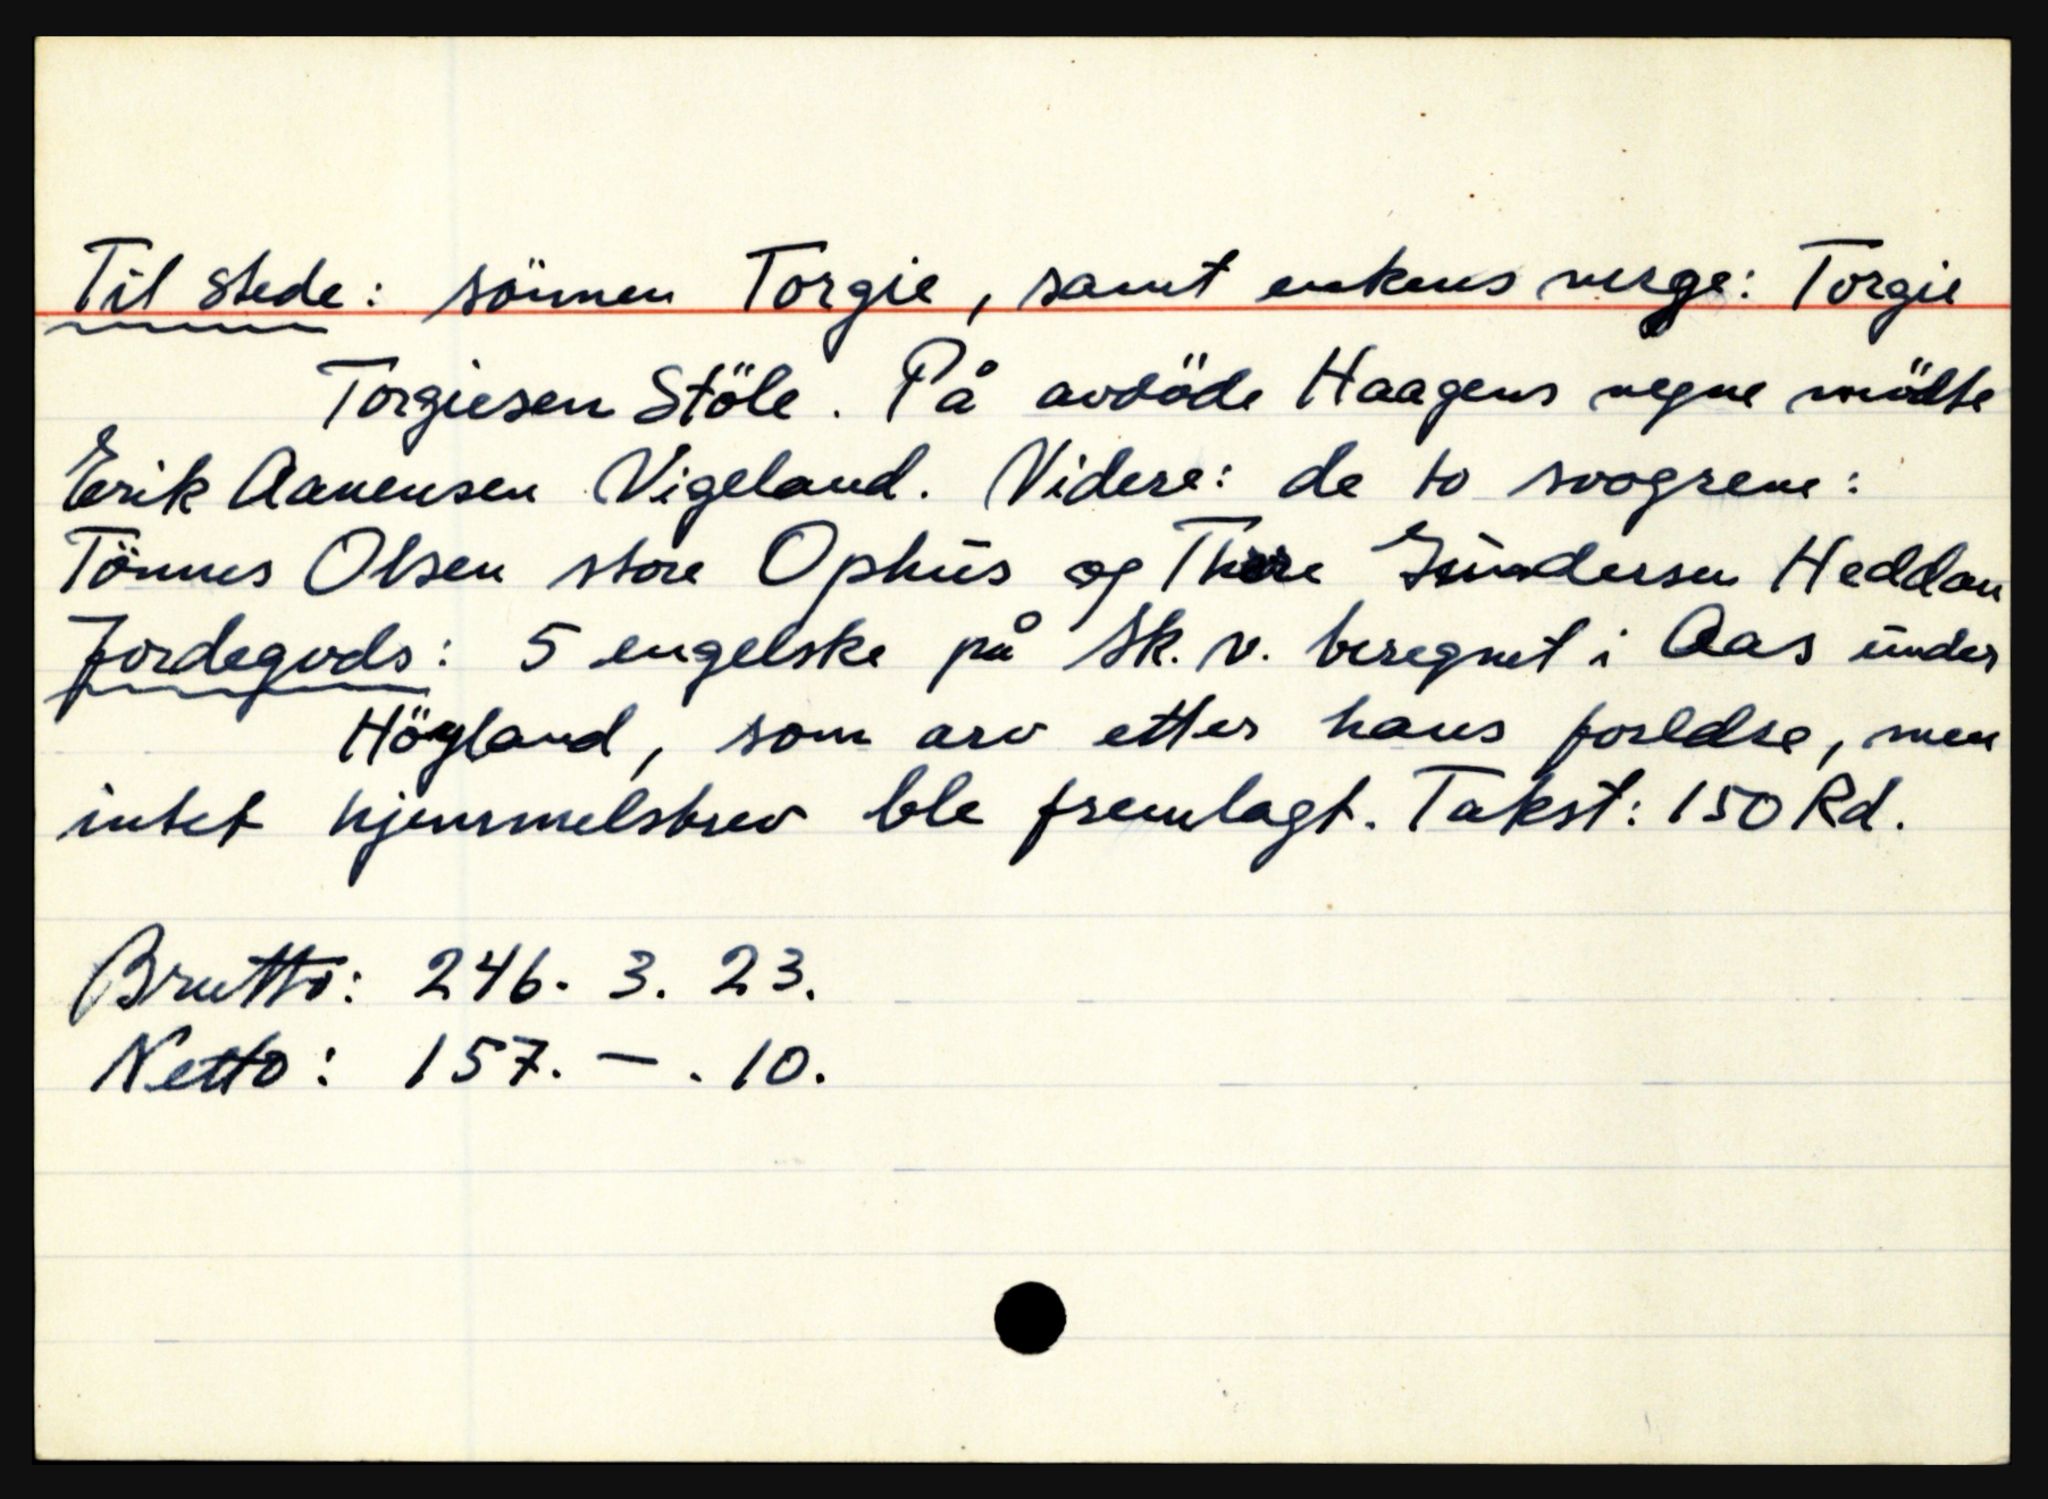 Til stede: sönnen Torgie, samt enkens verge: Torgie
Torgiesen Stöle. På avdöde Haagens vegne mödte
Erik Aanensen Vigeland. Videre: de to svogrene:
Tönnes Olsen store Ophüs og Thore Gündersen Heddan
Jordegods: 5 engelske på Sk. v. beregnet i Aas ünder
Höyland, som arv etter hans foreldre, men
intet hjemmelsbrev ble fremlagt. Takst: 150 Rd.
Brutto: 246. 3. 23.
Netto: 157. – . 10.